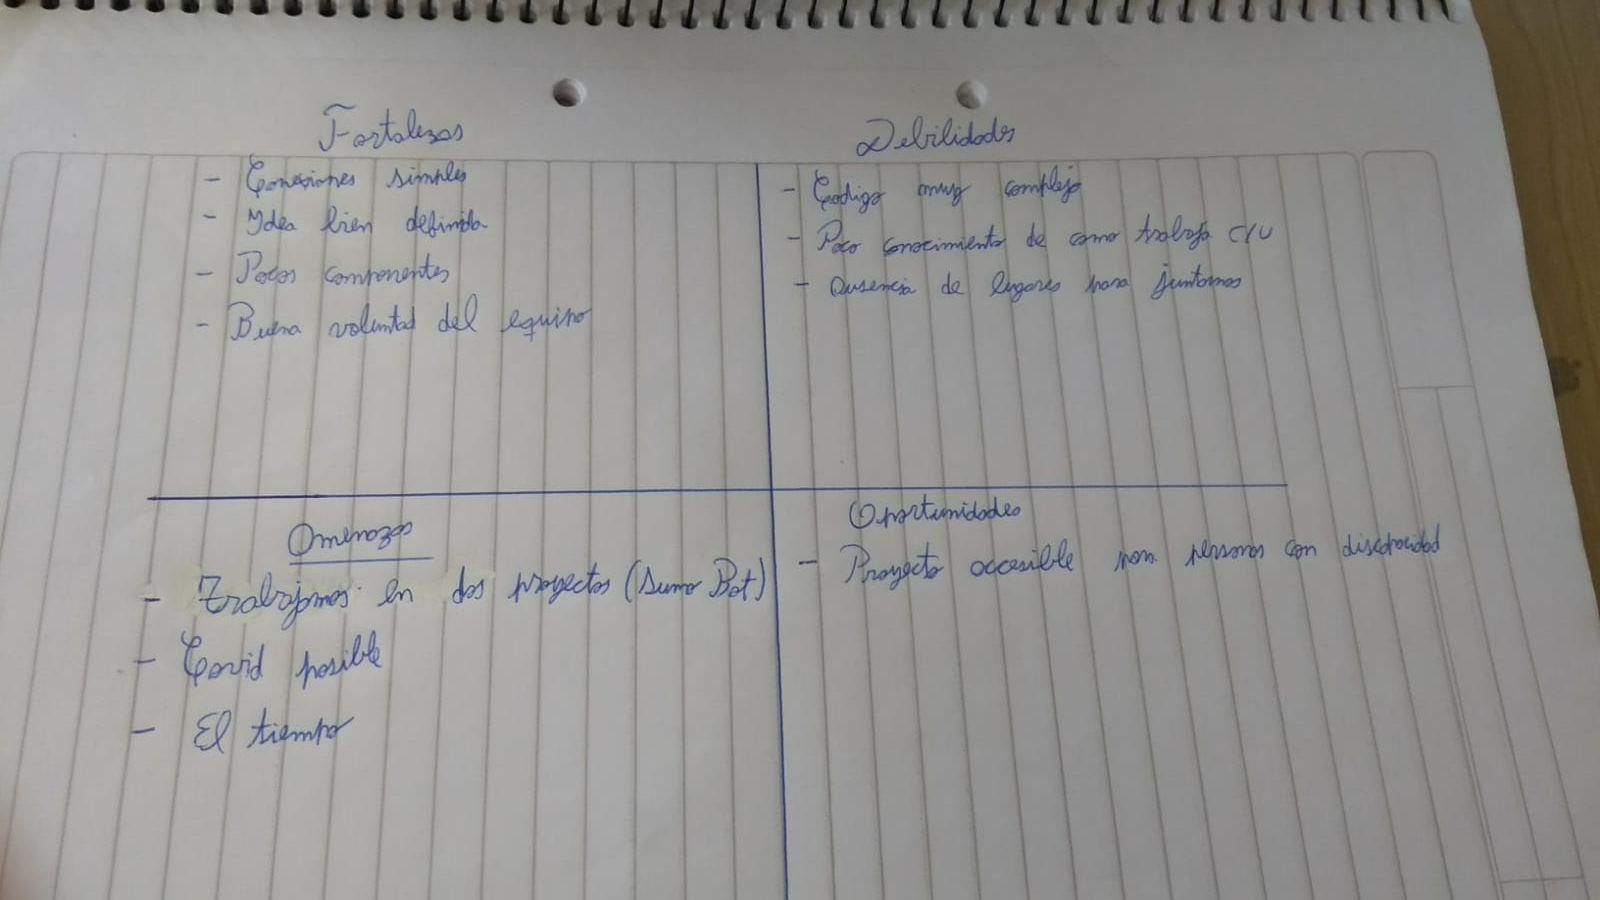 Fortalezas
- Conexiones simples
- Idea bien definida
- Pocos componentes
- Buena voluntad del equipo
Debilidades
- Codigo muy complejo
- Poco conocimiento de como trabaja C/U
- Ausencia de lugares para juntarnos
Amenazas
- Trabajamos en dos proyectos (Sumo Bot)
- Covid posible
- El tiempo
Oportunidades
- Proyecto accesible para personas con discapacidad